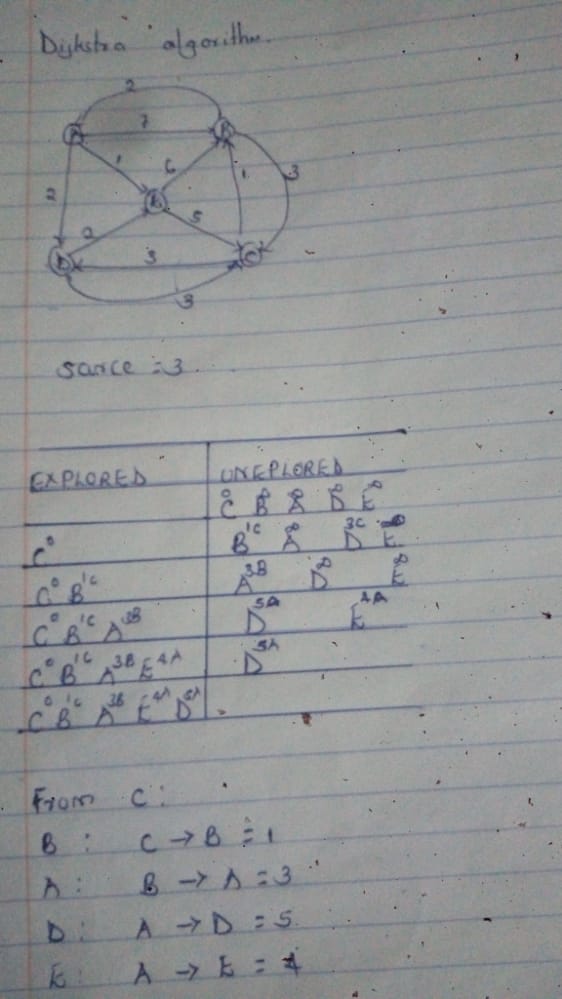 Dijkstra algorithm.
2
A 7 B
1 6 1 3
2 E
2 5
D 3 C
3
Sarce = 3
EXPLORED UNEPLORED
C⁰ B^∞ A^∞ D^∞ E^∞
C⁰ B^1C A^∞ D^3C E^∞
C⁰ B^1C A^3B D^∞ E^∞
C⁰ B^1C A^3B D^5A E^4A
C⁰ B^1C A^3B E^4A D^5A
C⁰ B^1C A^3B E^4A D^5A
From C :
B : C → B = 1
A : B → A = 3
D : A → D = 5
E : A → E = 4